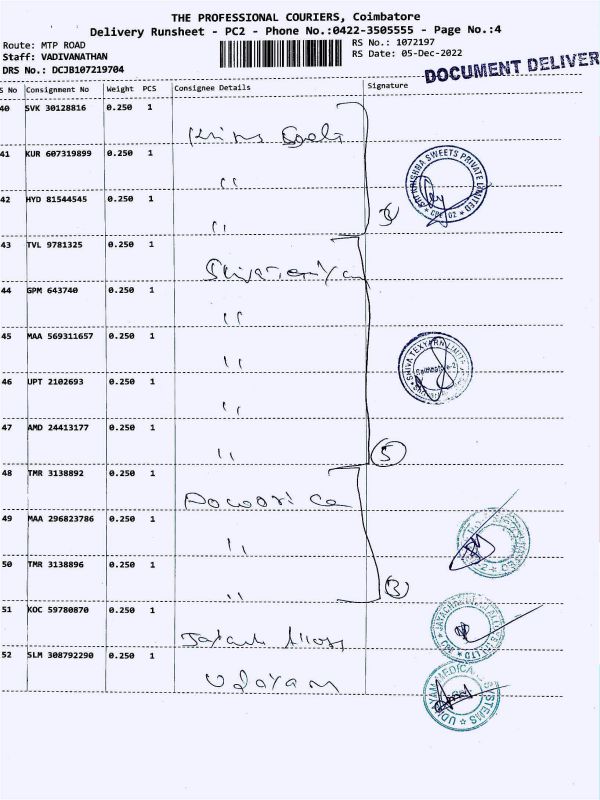 THE PROFESSIONAL COURIERS, Coimbatore
Delivery Runsheet - PC2 - Phone No.:0422-3505555 - Page No.:4
Route: MTP ROAD
RS No.: 1072197
Staff: VADIVANATHAN
RS Date: 05-Dec-2022
DRS No.: DCJB107219704
DOCUMENT DELIVER
S No Consignment No Weight PCS Consignee Details Signature
40 SVK 30128816 0.250 1
41 KUR 607319899 0.250 1 ''
SRI KRISHNA SWEETS PRIVATE LIMITED
42 HYD 81544545 0.250 1 ''
3
43 TVL 9781325 0.250 1
44 GPM 643740 0.250 1 ''
45 MAA 569311657 0.250 1 ''
SHIVA TEXYARN LIMITED
46 UPT 2102693 0.250 1 ''
47 AMD 24413177 0.250 1 ''
5
48 TMR 3138892 0.250 1
49 MAA 296823786 0.250 1 ''
50 TMR 3138896 0.250 1 ''
3
51 KOC 59780870 0.250 1
52 SLM 308792290 0.250 1 Udayam
UDHAYAM MEDICAL SYSTEMS